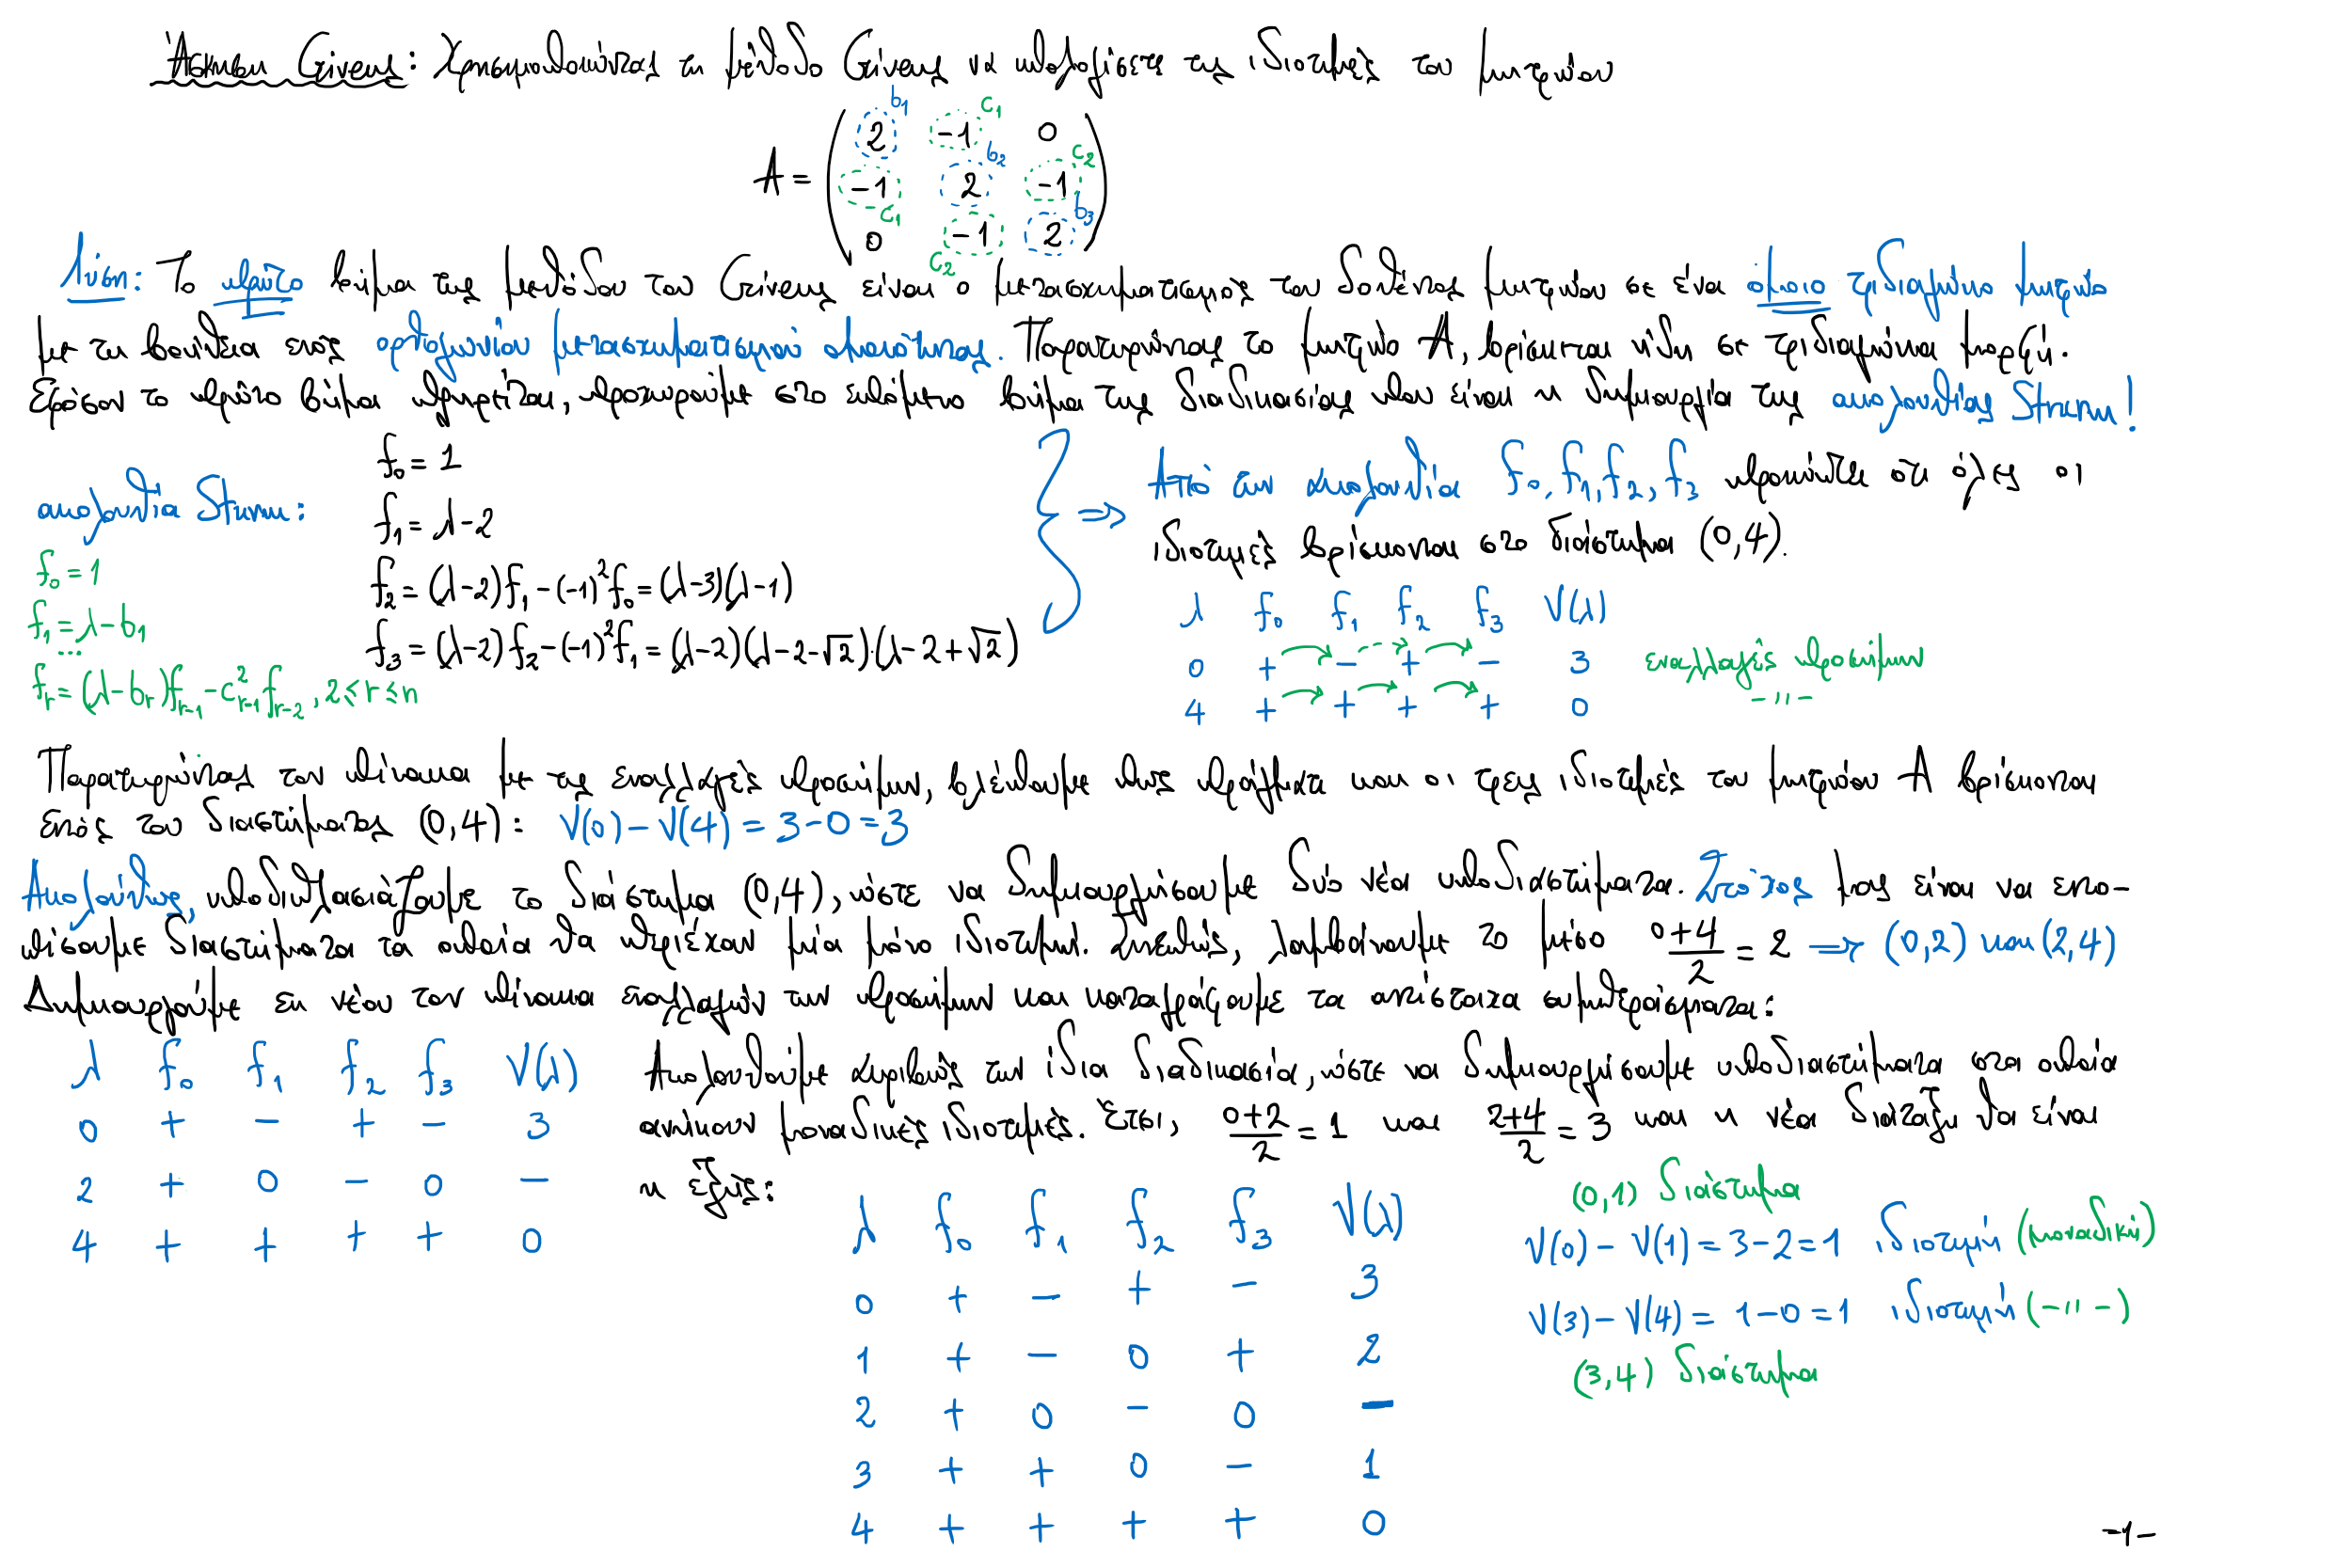 Άσκηση Givens: Χρησιμοποιώντας τη μέθοδο Givens να υπολογίσετε τις ιδιοτιμές του μητρώου
b₁ c₁
2 -1 0
b₂ c₂
A = -1 2 -1
c₁ b₃
0 -1 2
c₂
Λύση: Το πρώτο βήμα της μεθόδου του Givens είναι ο μετασχηματισμός του δοθέντος μητρώου σε ένα όμοιο τριδιαγώνιο μητρώο
με τη βοήθεια ενός ορθογωνίου μετασχηματισμού ομοιότητας. Παρατηρώντας το μητρώο A, βρίσκεται ήδη σε τριδιαγώνια μορφή.
Εφόσον το πρώτο βήμα πληρείται, προχωρούμε στο επόμενο βήμα της διαδικασίας που είναι η δημιουργία της ακολουθίας Sturm!
ακολουθία Sturm:
f₀ = 1
f₁ = λ-b₁
...
fᵣ = (λ-bᵣ)fᵣ₋₁ - c²ᵣ₋₁fᵣ₋₂, 2≤r≤n
f₀ = 1
f₁ = λ-2
f₂ = (λ-2)f₁-(-1)²f₀ = (λ-3)(λ-1)
f₃ = (λ-2)f₂-(-1)²f₁ = (λ-2)(λ-2-√2)·(λ-2+√2)
⇒ Από την ακολουθία f₀, f₁, f₂, f₃ προκύπτει ότι όλες οι
ιδιοτιμές βρίσκονται στο διάστημα (0,4).
λ f₀ f₁ f₂ f₃ V(λ)
0 + - + - 3 εναλλαγές προσήμων
4 + + + + 0 -''-
Παρατηρώντας τον πίνακα με τις εναλλαγές προσήμων, βλέπουμε πως πράγματι και οι τρεις ιδιοτιμές του μητρώου A βρίσκονται
εντός του διαστήματος (0,4): V(0)-V(4) = 3-0 = 3
Ακολούθως, υποδιπλασιάζουμε το διάστημα (0,4), ώστε να δημιουργήσουμε δύο νέα υποδιαστήματα. Στόχος μας είναι να εντο-
πίσουμε διαστήματα τα οποία θα περιέχουν μία μόνο ιδιοτιμή. Συνεπώς, λαμβάνουμε το μέσο (0+4)/2 = 2 ⇒ (0,2) και (2,4)
Δημιουργούμε εκ νέου τον πίνακα εναλλαγών των προσήμων και καταγράφουμε τα αντίστοιχα συμπεράσματα:
λ f₀ f₁ f₂ f₃ V(λ)
0 + - + - 3
2 + 0 - 0 -
4 + + + + 0
Ακολουθούμε ακριβώς την ίδια διαδικασία, ώστε να δημιουργήσουμε υποδιαστήματα στα οποία
ανήκουν μοναδικές ιδιοτιμές. Έτσι, (0+2)/2 = 1 και (2+4)/2 = 3 και η νέα διάταξη θα είναι
η εξής:
λ f₀ f₁ f₂ f₃ V(λ)
0 + - + - 3
1 + - 0 + 2
2 + 0 - 0 -
3 + + 0 - 1
4 + + + + 0
(0,1) διάστημα
V(0)-V(1) = 3-2 = 1 ιδιοτιμή (μοναδική)
V(3)-V(4) = 1-0 = 1 ιδιοτιμή (-''-)
(3,4) διάστημα
-1-